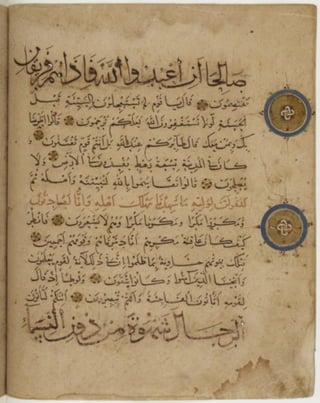 صالحا أن اعبدوا الله فإذا هم فريقان
يختصمون قال يا قوم لم تستعجلون بالسيئة قبل
الحسنة لولا تستغفرون الله لعلكم ترحمون قالوا اطيرنا
بك وبمن معك قال طائركم عند الله بل أنتم قوم تفتنون و
كان في المدينة تسعة رهط يفسدون في الأرض ولا
يصلحون قالوا تقاسموا بالله لنبيتنه وأهله ثم
لنقولن لوليه ما شهدنا مهلك أهله وإنا لصادقون
ومكروا مكرا ومكرنا مكرا وهم لا يشعرون فانظر
كيف كان عاقبة مكرهم أنا دمرناهم وقومهم أجمعين
فتلك بيوتهم خاوية بما ظلموا إن في ذلك لآية لقوم يعلمون
وأنجينا الذين آمنوا وكانوا يتقون ولوطا إذ قال
لقومه أتأتون الفاحشة وأنتم تبصرون أئنكم لتأتون
الرجال شهوة من دون النساء